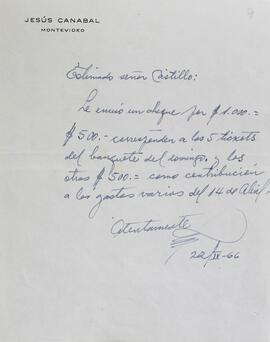 7
JESÚS CANABAL
MONTEVIDEO
Estimado señor Castillo:
Le envío un cheque por $ 1.000.=
$ 500.- corresponden a los 5 tickets
del banquete del domingo, y los
otros $ 500.= como contribución
a los gastos varios del 14 de Abril.
Atentamente
-66